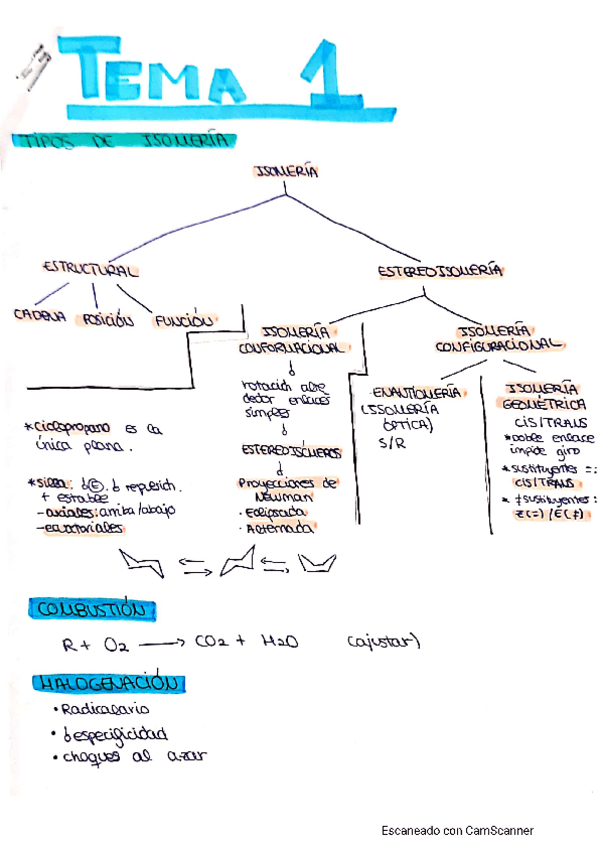 TEMA 1
TIPOS DE ISOMERÍA
ISOMERÍA
ESTRUCTURAL
ESTEREOISOMERÍA
CADENA POSICIÓN FUNCIÓN
ISOMERÍA
CONFORMACIONAL
rotación alre
dedor enlaces
simples
ESTEREOISÓMEROS
Proyecciones de
Newman
· Eclipsada
· Alternada
ISOMERÍA
CONFIGURACIONAL
ENAUTIOMERÍA
(ISOMERÍA
ÓPTICA)
S/R
ISOMERÍA
GEOMÉTRICA
CIS/TRANS
* Doble enlace
impide giro
* sustituyentes =:
CIS/TRANS
* ≠ sustituyentes:
Z(=) / E(≠)
* ciclopropano es la
única plana.
* silla: ↓E, ↓ repulsión.
+ estable
- axiales: arriba/abajo
- ecuatoriales
COMBUSTIÓN
R + O2 → CO2 + H2O (ajustar)
HALOGENACIÓN
• Radicalario
• ↓ especificidad
• choques al azar
Escaneado con CamScanner